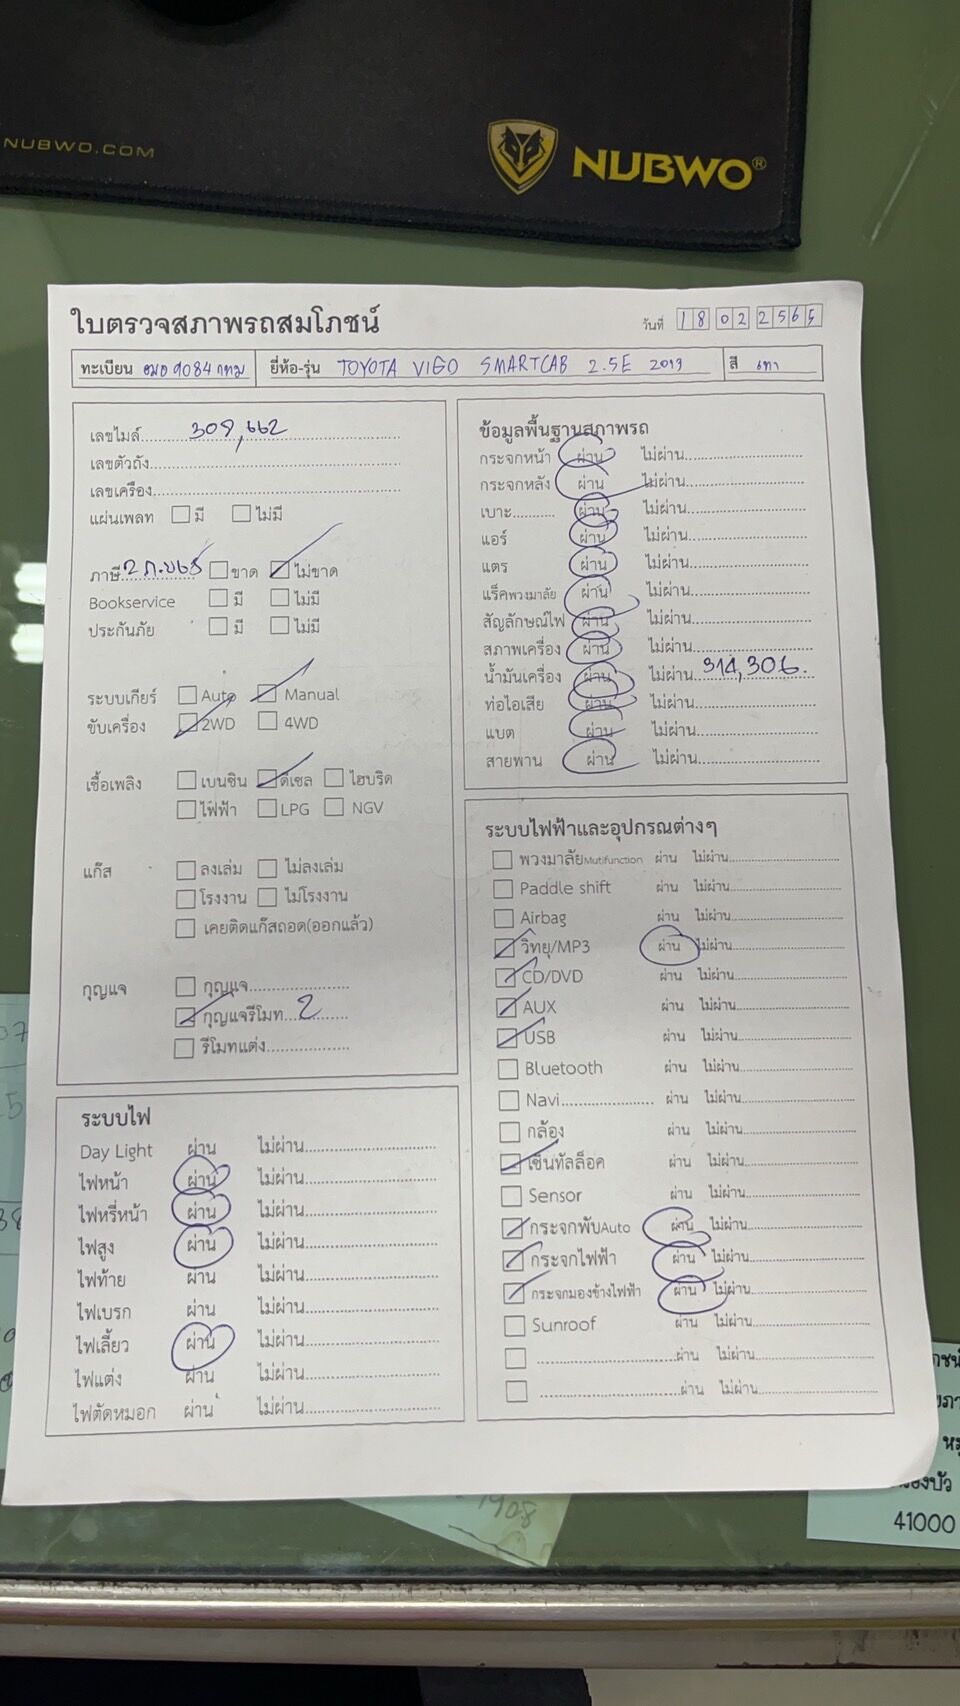 NUBWO.COM
NUBWO®
ใบตรวจสภาพรถสมโภชน์
วันที่ 18 02 2565
ทะเบียน 9084 กทม ยี่ห้อ-รุ่น TOYOTA VIGO SMARTCAB 2.5E 2013 สี เทา
เลขไมล์ 309,662
เลขตัวถัง
เลขเครื่อง
แผ่นเพลท มี ไม่มี
ภาษี 2 ก.พ 65 ขาด ไม่ขาด
Bookservice มี ไม่มี
ประกันภัย มี ไม่มี
ระบบเกียร์ Auto Manual
ขับเครื่อง 2WD 4WD
เชื้อเพลิง เบนซิน ดีเซล ไฮบริด
ไฟฟ้า LPG NGV
แก๊ส ลงเล่ม ไม่ลงเล่ม
โรงงาน ไม่โรงงาน
เคยติดแก๊สถอด(ออกแล้ว)
กุญแจ กุญแจ
กุญแจรีโมท 2
รีโมทแต่ง
ระบบไฟ
Day Light ผ่าน ไม่ผ่าน
ไฟหน้า ผ่าน ไม่ผ่าน
ไฟหรี่หน้า ผ่าน ไม่ผ่าน
ไฟสูง ผ่าน ไม่ผ่าน
ไฟท้าย ผ่าน ไม่ผ่าน
ไฟเบรก ผ่าน ไม่ผ่าน
ไฟเลี้ยว ผ่าน ไม่ผ่าน
ไฟแต่ง ผ่าน ไม่ผ่าน
ไฟตัดหมอก ผ่าน ไม่ผ่าน
ข้อมูลพื้นฐานสภาพรถ
กระจกหน้า ผ่าน ไม่ผ่าน
กระจกหลัง ผ่าน ไม่ผ่าน
เบาะ ผ่าน ไม่ผ่าน
แอร์ ผ่าน ไม่ผ่าน
แตร ผ่าน ไม่ผ่าน
แร็คพวงมาลัย ผ่าน ไม่ผ่าน
สัญลักษณ์ไฟ ผ่าน ไม่ผ่าน
สภาพเครื่อง ผ่าน ไม่ผ่าน
น้ำมันเครื่อง ผ่าน ไม่ผ่าน 314,306
ท่อไอเสีย ผ่าน ไม่ผ่าน
แบต ผ่าน ไม่ผ่าน
สายพาน ผ่าน ไม่ผ่าน
ระบบไฟฟ้าและอุปกรณต่างๆ
พวงมาลัยMutifunction ผ่าน ไม่ผ่าน
Paddle shift ผ่าน ไม่ผ่าน
Airbag ผ่าน ไม่ผ่าน
วิทยุ/MP3 ผ่าน ไม่ผ่าน
CD/DVD ผ่าน ไม่ผ่าน
AUX ผ่าน ไม่ผ่าน
USB ผ่าน ไม่ผ่าน
Bluetooth ผ่าน ไม่ผ่าน
Navi ผ่าน ไม่ผ่าน
กล้อง ผ่าน ไม่ผ่าน
เซ็นทัลล็อค ผ่าน ไม่ผ่าน
Sensor ผ่าน ไม่ผ่าน
กระจกพับAuto ผ่าน ไม่ผ่าน
กระจกไฟฟ้า ผ่าน ไม่ผ่าน
กระจกมองข้างไฟฟ้า ผ่าน ไม่ผ่าน
Sunroof ผ่าน ไม่ผ่าน
ผ่าน ไม่ผ่าน
ผ่าน ไม่ผ่าน
1908
41000